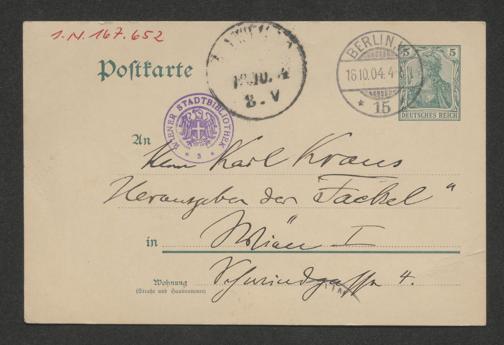 I.N. 167.652
Postkarte
BERLIN, W.
16.10.04. 4
* 15
5 5
DEUTSCHES REICH
10. 4
8.V
WIENER STADTBIBLIOTHEK
An Herrn Karl Kraus
Herausgeber der "Fackel"
in Wien I
Wohnung Schwindgasse 4.
(Straße und Hausnummer)